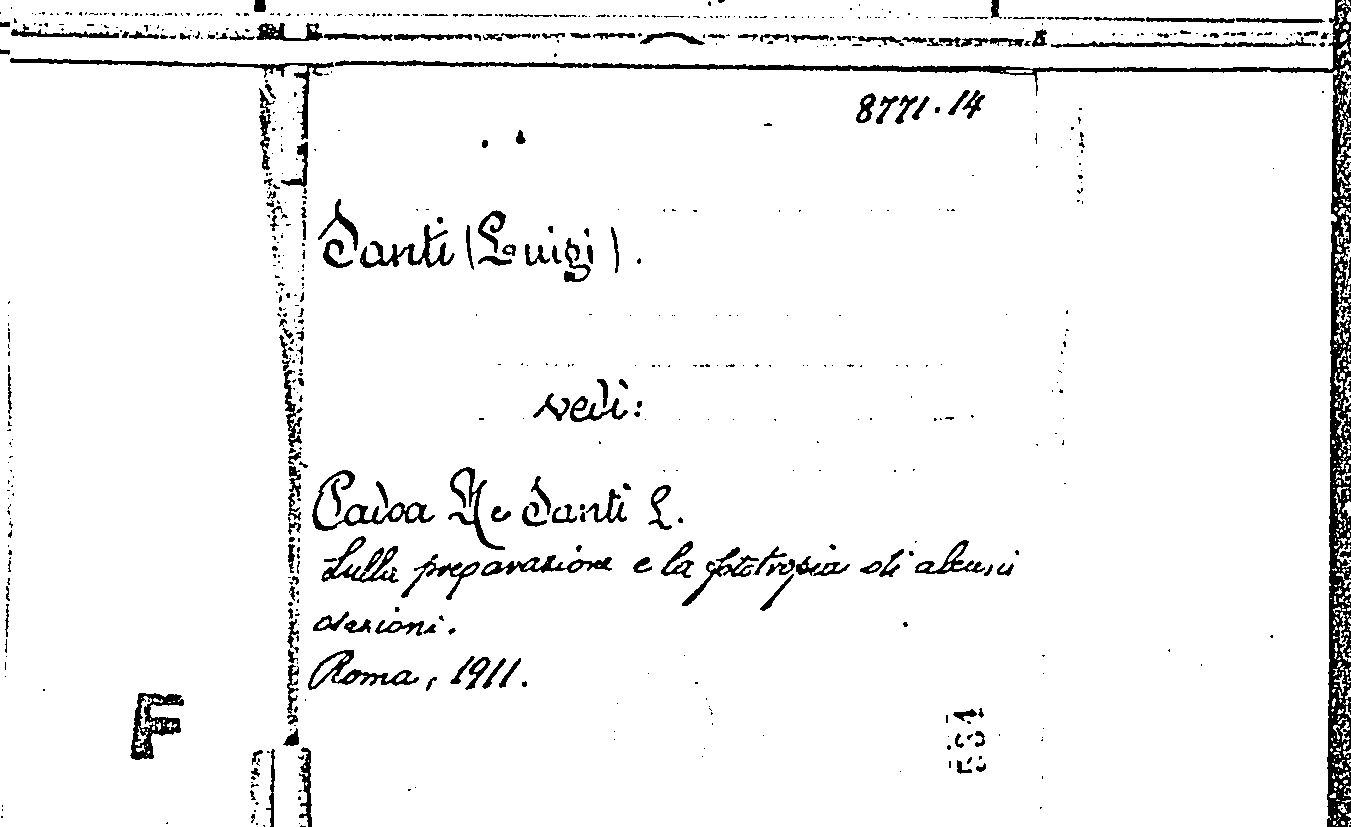 8771.14
Santi (Luigi).
vedi:
Padoa M e Santi L.
Sulla preparazione e la fototropia di alcuni
osazioni.
Roma, 1911.
F